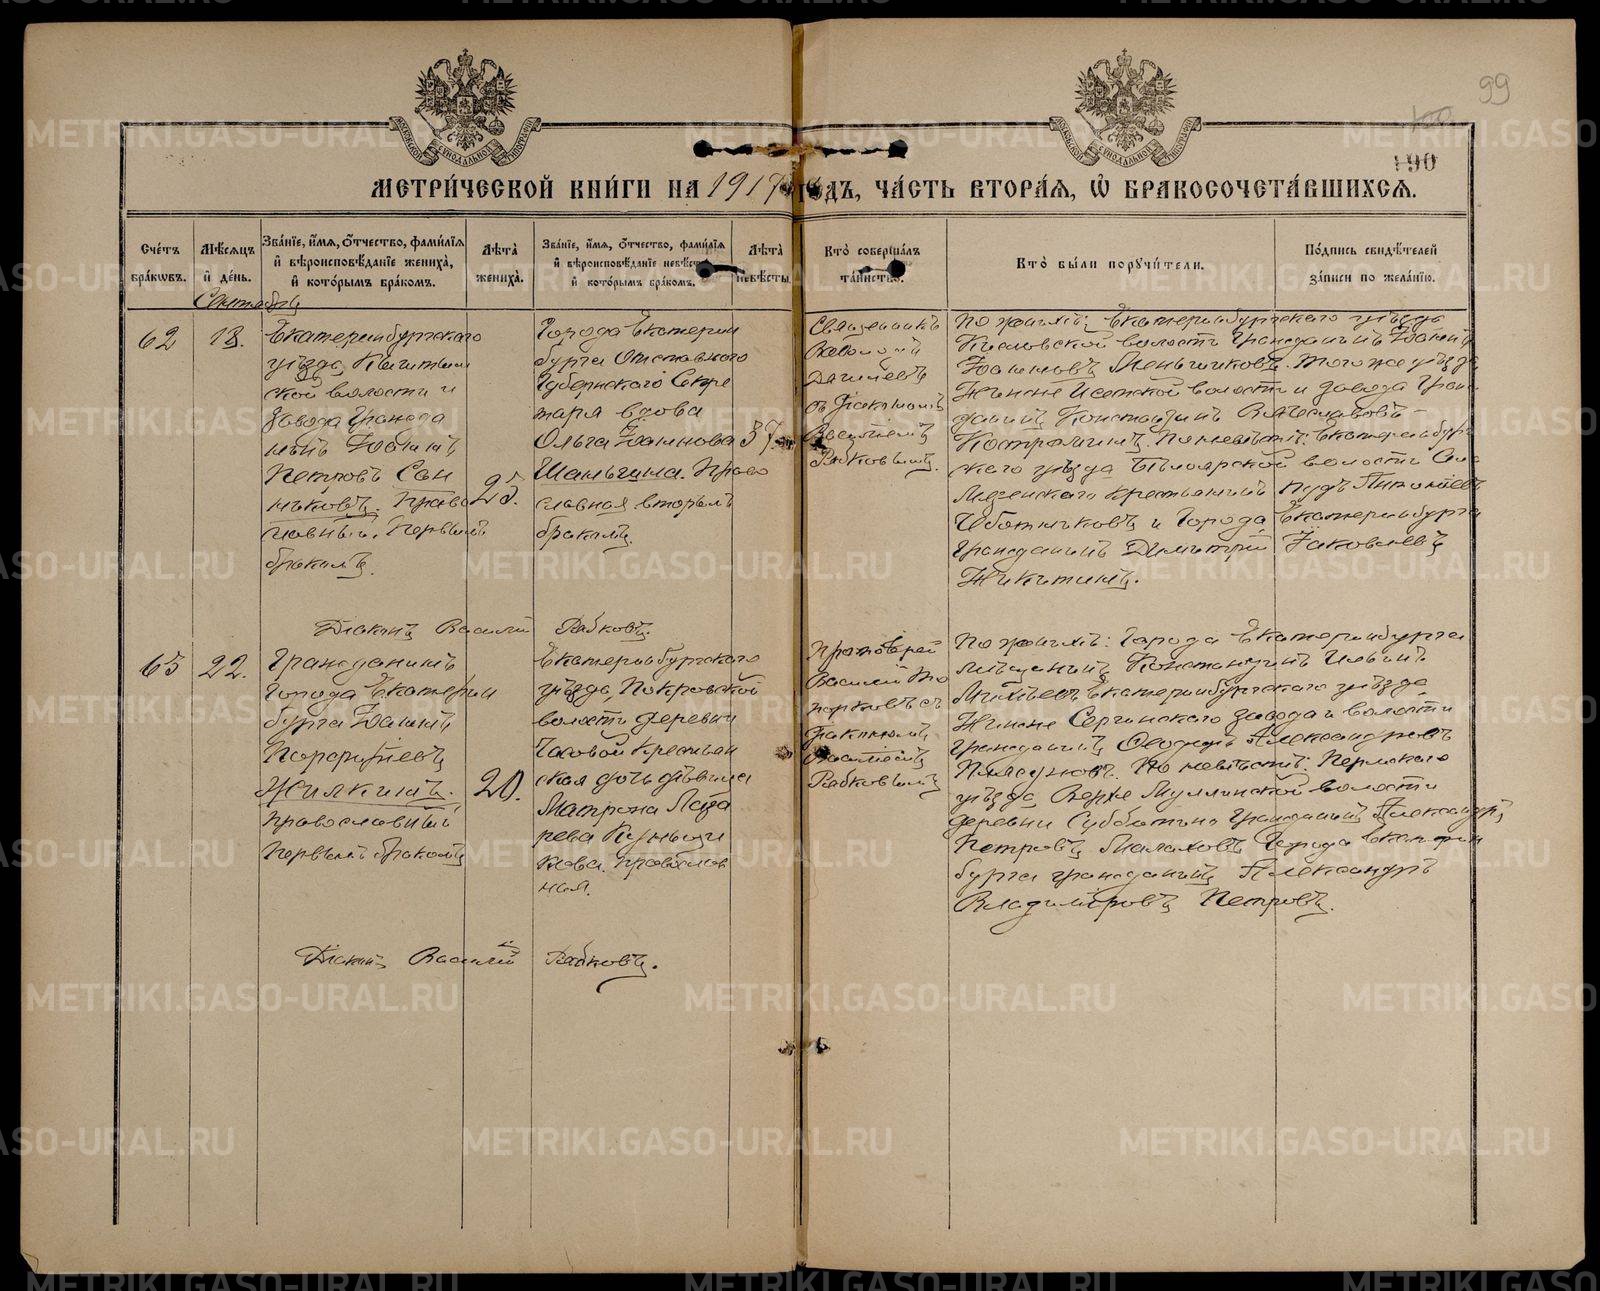 99
190
МЕТРИ́ЧЕСКОЙ КНИ́ГИ НА 1917 ГОДЪ, ЧА́СТЬ ВТОРА́Я, Ѡ БРАКОСОЧЕТА́ВШИХСѦ.
Сче́тъ бра́ковъ.
Мѣ́сяцъ и де́нь.
Зва́нїе, и́мя, ѻ́тчество, фами́лїя и вѣроисповѣ́данїе жениха̀, и кото́рымъ бра́комъ.
Лѣ́та жениха̀.
Зва́нїе, и́мя, ѻ́тчество, фами́лїя и вѣроисповѣ́данїе невѣ́сты, и кото́рымъ бра́комъ.
Лѣ́та невѣ́сты.
Кто̀ соверша́лъ та́инство.
Кто̀ бы́ли поручи́тели.
По́дпись свидѣ́телей за́писи по жела́нїю.
Сентябрь
62
18.
Екатеринбургскаго
уѣзда,
ской волости и
завода гражда
нинъ Іоаннъ
Петровъ Сан
никовъ. Право
славный. Первымъ
бракомъ.
25.
Города Екатерин
бурга Отставного
Губернскаго Секре
таря вдова
Ольга Іоаннова
Шаньгина. Право
славная вторымъ
бракомъ.
37
Священникъ
съ Діакономъ
Василіемъ
Рябковымъ.
По женихѣ: Екатеринбургскаго уѣзда
Кисловской волости гражданинъ Іоаннъ
Іоанновъ Меньшиковъ. Того же уѣзда
Нижне Исетской волости и завода граж
данинъ Константинъ
По невѣстѣ: Екатеринбург
скаго уѣзда Бѣлоярской волости
крестьянинъ
и Города Екатеринбурга
гражданинъ Димитрій Іаковлевъ
Никитинъ.
Діаконъ Василій Рябковъ.
63
22.
Гражданинъ
города Екатерин
бурга Іоаннъ
Порфирьевъ
Жилкинъ.
православный
первымъ бракомъ
20.
Екатеринбургскаго
уѣзда, Покровской
волости деревни
Часовой крестьян
ская дочь дѣвица
Матрона Лаза
рева Куньщи
кова. Православ
ная.
Протоіерей
Василій
съ
діакономъ
Василіемъ
Рябковымъ
По женихѣ: Города Екатеринбурга
мѣщанинъ Константинъ Ильинъ
Екатеринбургскаго уѣзда
Нижне Сергинскаго завода и волости
гражданинъ Ѳеодоръ Александровъ
Плясуновъ. По невѣстѣ: Пермскаго
уѣзда, Верхе Муллинской волости
деревни Субботино гражданинъ Александръ
Петровъ Малаховъ Города Екатерин
бурга гражданинъ Александръ
Владиміровъ Петровъ.
Діаконъ Василій Рябковъ.
METRIKI.GASO-URAL.RU